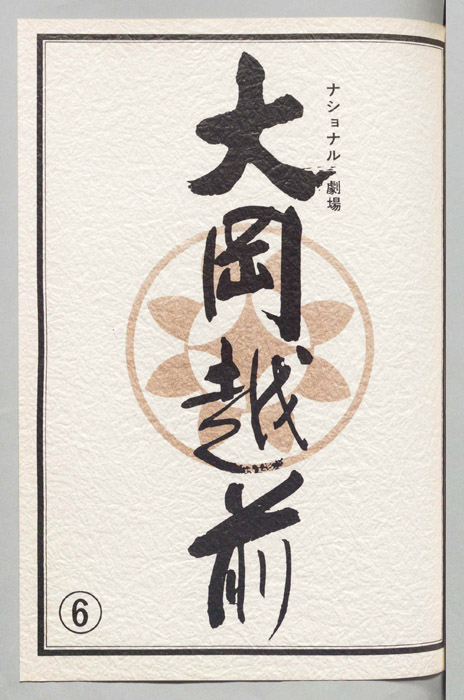 ナショナル劇場
大岡越前
⑥